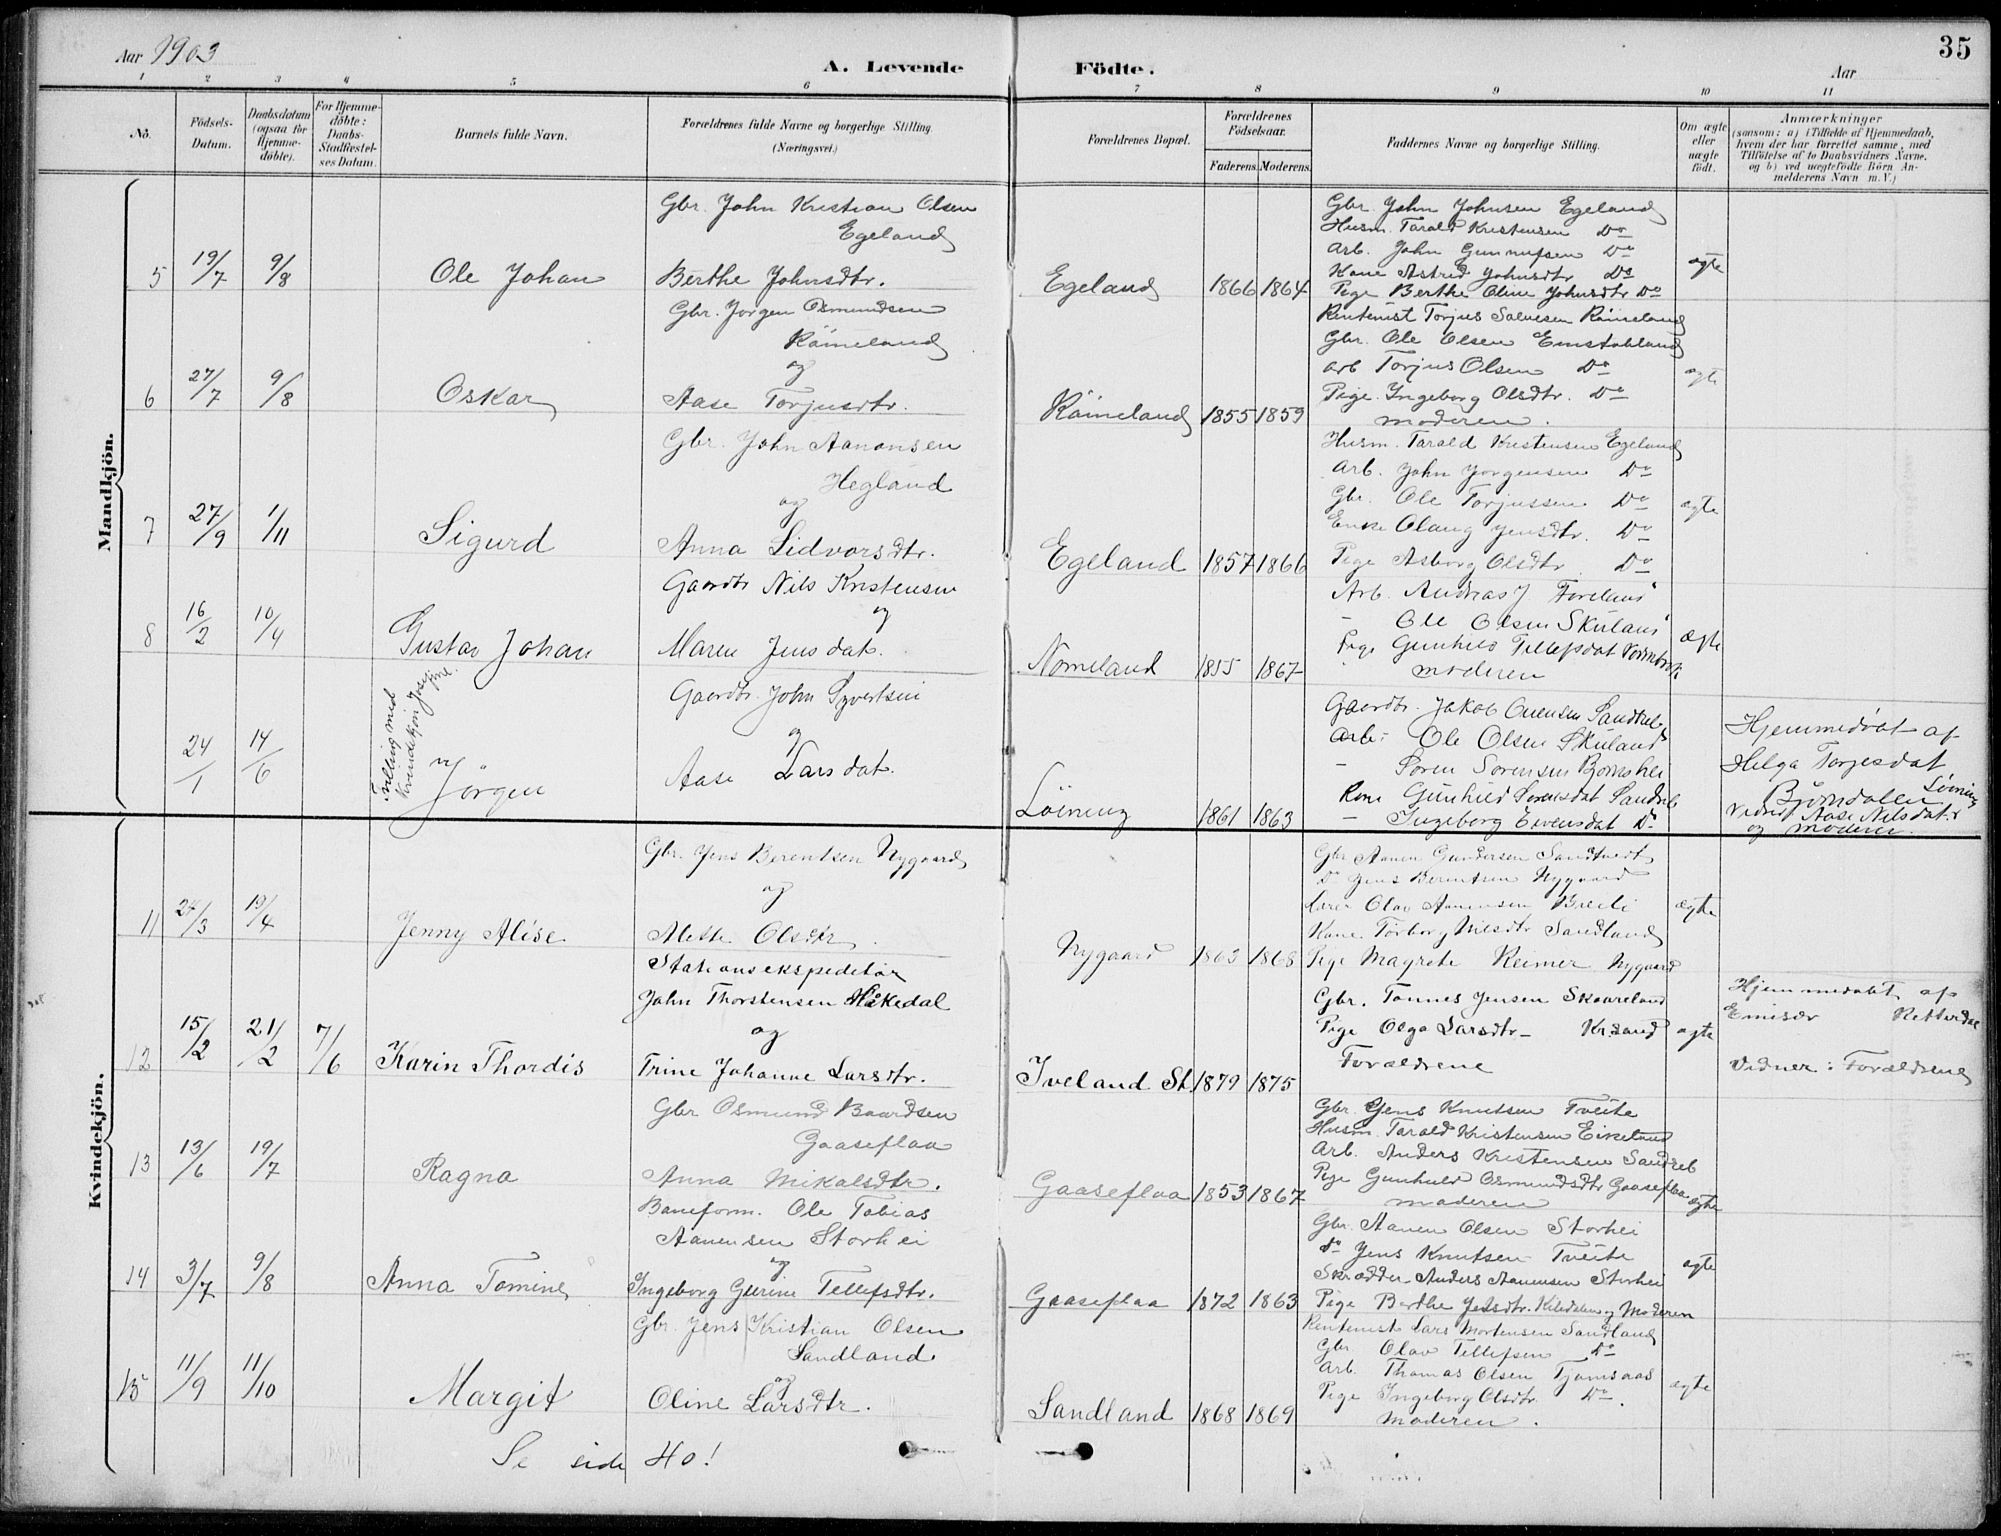 35
Aar 1903
A. Levende Födte.
Aar
1 2 3 4 5 6 7 8 9 10 11
No.
Födsels-Datum.
Daabsdatum (ogsaa for Hjemme-döbte).
For Hjemme-döbte: Daabs-Stadfæstel-ses Datum.
Barnets fulde Navn.
Forældrenes fulde Navne og borgerlige Stilling.
(Næringsvei.)
Forældrenes Bopæl.
Forældrenes Födselsaar.
Faderens. Moderens.
Faddernes Navne og borgerlige Stilling.
Om ægte eller uægte födt.
Anmærkninger
(saasom: a) i Tilfælde af Hjemmedaab,
hvem der har forrettet samme, med
Tilföielse af to Daabsvidners Navne.
og b) ved uægtefödte Börn An-
melderens Navn m. V.)
Mandkjön.
5 19/7 9/8 Ole Johan
Gbr. John Kristian Olsen
Egeland
Berthe Johnsdtr.
Egeland 1866 1864
Gbr. John Johnsen Egeland
Husm. Tarald Kristensen Do
Arb. John Gunnufsen Do
Kone Astrid Johnsdtr Do
Pige Berthe Oline Johnsdtr Do
ægte
6 27/7 9/8 Oskar
Gbr. Jorgen Osmundsen
Råineland
og
Aase Torjusdtr.
Råineland 1855 1859
Rentenist Torjus Salvesen Råineland
Gbr. Ole Olsen Emstahland
Arb Torjus Olsen Do
Pige. Ingeborg Olsdtr. Do
moderen.
ægte
7 27/9 1/11 Sigurd
Gbr. John Aanonsen
Hegland
og
Anna Sidvorsdtr.
Egeland 1857 1866
Husm. Tarald Kristensen Egeland
Arb. John Jorgensen Do
Gbr. Ole Torjussen Do
Enke Olaug Jensdtr. Do
Pige Asborg Olsdtr Do
ægte
8 16/2 10/4 Gustav Johan
Gaardbr Nils Kristensen
og
Maren Jensdat.
Nomeland 1855 1867
Arb. Andreas J
Ole Olsen Skuland
Pige Gunhild Tellefsdat
moderen
ægte
24/1 14/6 Jörgen
Tvilling med Kvindekjön
Gaardbr. John Syvertsen
og
Aase Larsdat.
Löining 1861 1863
Gaardbr. Jakob
Arb. Ole Olsen Skuland
Soren Sorensen
Kone Gunhild
Ingeborg Eivensdat Do
Hjemmedöbt af
Helga Torjesdat
Löining
og moderen.
Kvindekjön.
11 24/3 19/4 Jenny Alise
Gbr. Jens Berentsen Nygaard
og
Mette Olsdtr.
Nygaard 1863 1868
Gbr Aanen Gundersen Sandtvedt
Do Jens Berentsen Nygaard
Lærer Olav Aanensen Breili
Kone Torborg Nilsdtr Sandland
Pige Magrete Reimer Nygaard
ægte
12 15/2 21/2 7/6 Karin Thordis
Stasionsekspeditör
John Thorstensen Håkedal
og
Trine Johanne Larsdtr.
Iveland St. 1879 1875
Gbr. Tonnes Jensen Skaareland
Pige Olga Larsdtr- Kr.sand
Forældrene
ægte
Hjemmedøbt af
Emisær
Vidner: Forældrene
13 13/6 19/7 Ragna
Gbr Osmund Baardsen
Gaaseflaa
Anna Mikalsdtr.
Gaaseflaa 1853 1867
Gbr. Jens Knutsen Tveite
Husm. Tarald Kristensen Eikeland
Arb. Anders Kristensen Sandreb
Pige Gunhild Osmundsdtr Gaaseflaa
moderen
ægte
14 3/7 9/8 Anna Tomine
Baneform. Ole Tobias
Aanensen Storhei
og
Ingeborg Gurine Tellefsdtr.
Gaaseflaa 1872 1863
Gbr. Aanen Olsen Storhei
Do Jens Knutsen Tveite
Skrædder Anders Aanensen Storhei
Pige Berthe Jensdtr. Kiledalen og Moderen
ægte
15 11/9 11/10 Margit
Gbr. Jens Kristian Olsen
Sandland
og
Oline Larsdtr.
Sandland 1868 1869
Rentenist Lars Mortensen Sandland
Gbr Olav Tellefsen Do
Arb. Thomas Olsen Tjomsaas
Pige Ingeborg Olsdtr. Do.
Moderen.
ægte
Se side 40!